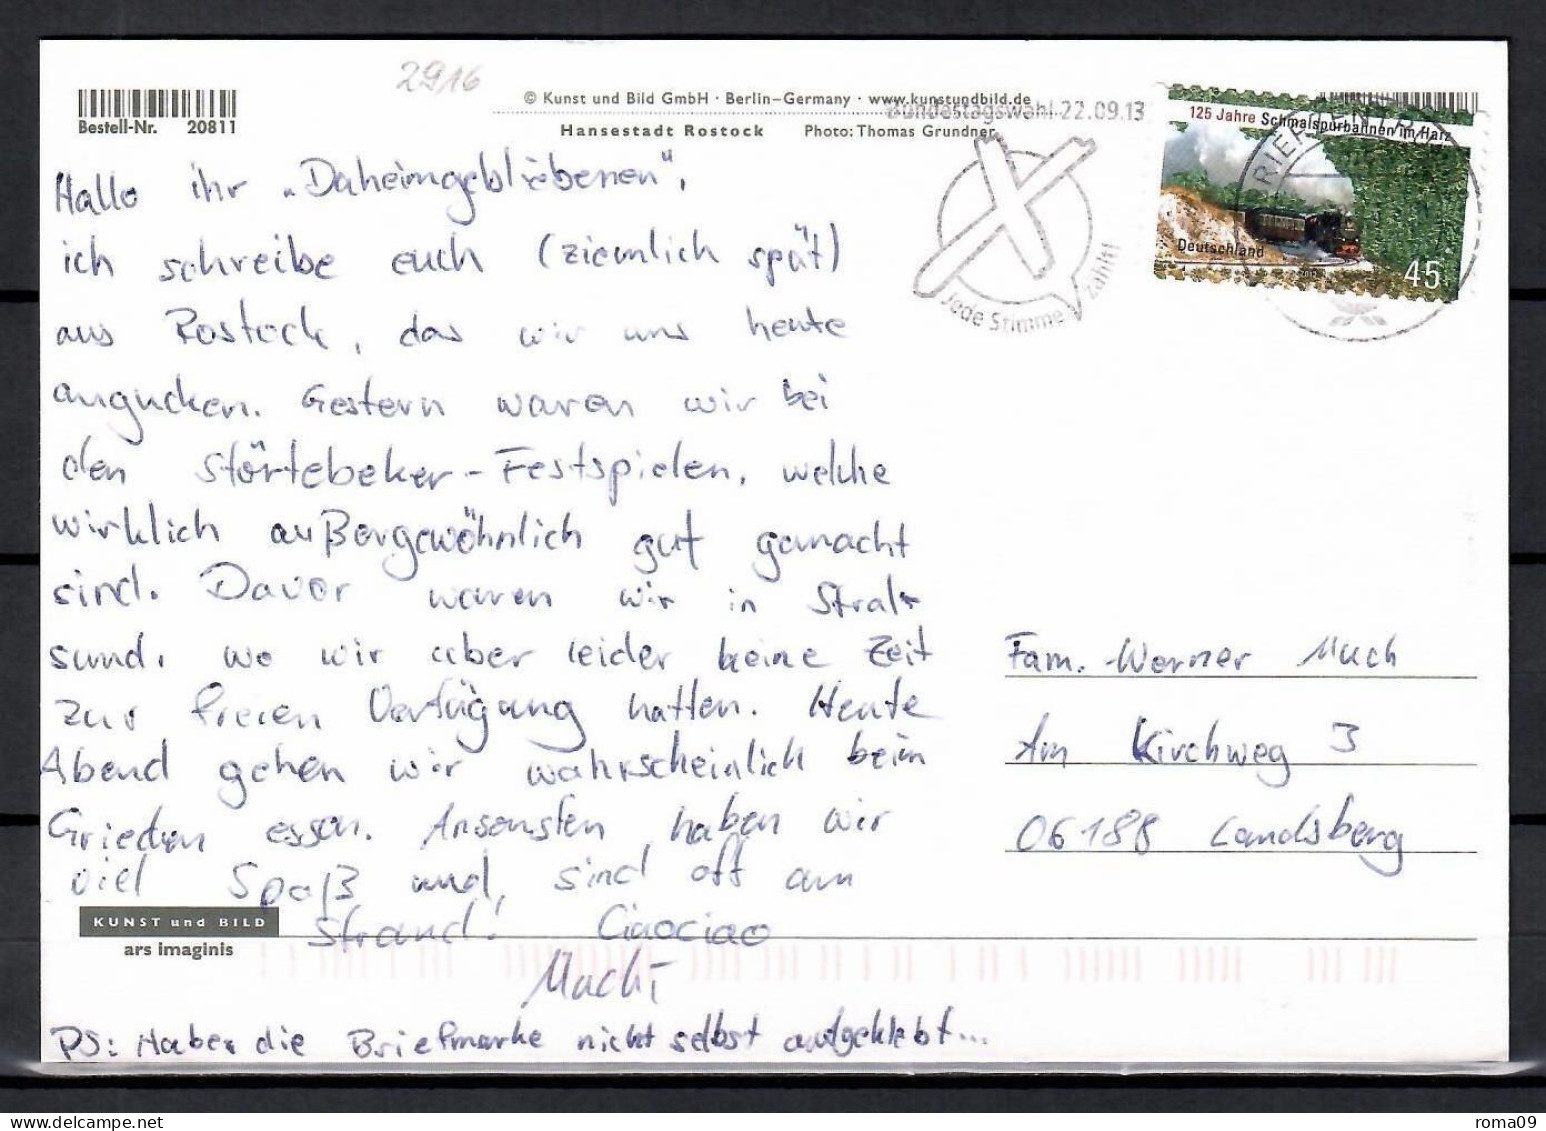 2916
© Kunst und Bild GmbH · Berlin–Germany · www.kunstundbild.de
Bestell-Nr. 20811
Hansestadt Rostock Photo: Thomas Grundner
Bundestagswahl 22.09.13
Jede Stimme zählt!
125 Jahre Schmalspurbahnen im Harz
Deutschland
45
Hallo ihr „Daheimgebliebenen",
ich schreibe euch (ziemlich spät)
aus Rostock, das wir uns heute
angucken. Gestern waren wir bei
den Störtebeker-Festspielen, welche
wirklich außergewöhnlich gut gemacht
sind. Davor waren wir in Stral-
sund, wo wir aber leider keine Zeit
zur freien Verfügung hatten. Heute
Abend gehen wir wahrscheinlich beim
Griechen essen. Ansonsten haben wir
viel Spaß und sind oft am
Strand! Ciaociao
Muchi
PS: Habe die Briefmarke nicht selbst aufgeklebt...
Fam. Werner Much
Am Kirchweg 3
06188 Landsberg
KUNST und BILD
ars imaginis
roma09